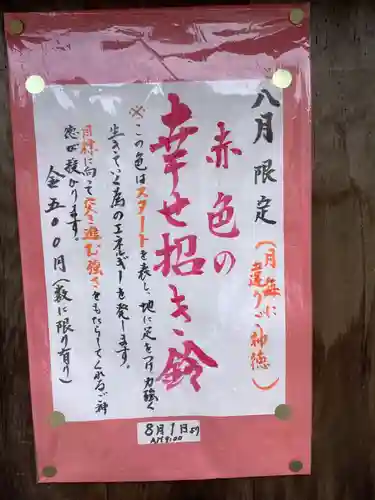 八月限定
(月毎に
違うご神徳)
赤色の
幸せ招き鈴
※この色はスタートを表し、地に足をつけ力強く
生きていく為のエネルギーを発します。
目標に向って突き進む強さをもたらしてくれるご神
恋が授かります。
金五〇〇円(数に限り有り)
8月1日より
AM9:00